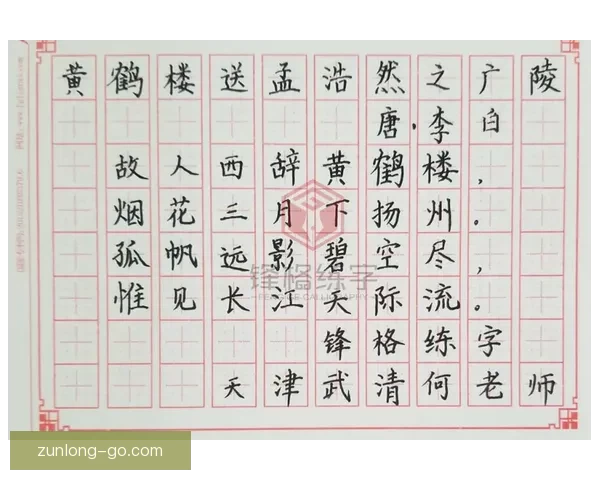 黄鹤楼送孟浩然之广陵
唐·李白
故人西辞黄鹤楼，
烟花三月下扬州。
孤帆远影碧空尽，
惟见长江天际流。
锋格练字
天津武清何老师
锋格练字
FENGGE CALLIGRAPHY
zunlong-go.com